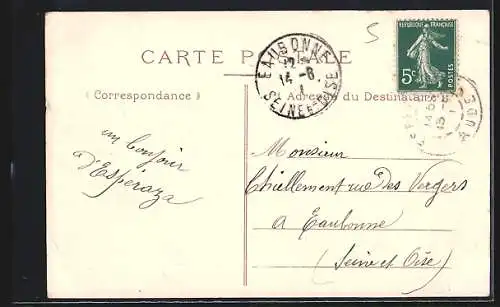 5
CARTE POSTALE
EAUBONNE
12
14 -8.
SEINE ET OISE
REPUBLIQUE FRANÇAISE
5c
POSTES
AUDE
( Correspondance )
Adresse du Destinataire
un bonjour
d'Espéraza
Monsieur
Chaillement rue des Vergers
a Eaubonne
(Seine et Oise)